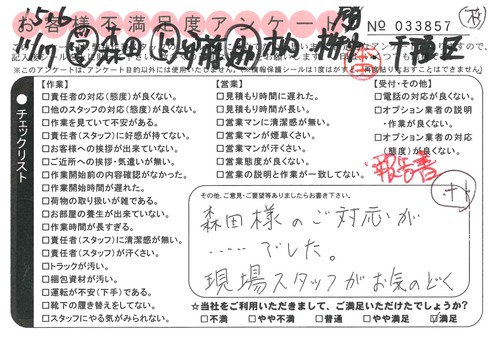 お客様不満足度アンケート
'15.6
No 033857
11/17 営 森田
千種区
※このアンケートは、アンケート目的以外には使用いたしません。
チェックリスト
【作業】
□責任者の対応(態度)が良くない。
□他のスタッフの対応(態度)が良くない。
□作業を見ていて不安がある。
□責任者(スタッフ)に好感が持てない。
□お客様への挨拶が出来ていない。
□ご近所への挨拶・気遣いが無い。
□作業開始前の内容確認がなかった。
□作業開始時間が遅れた。
□荷物の取り扱いが雑である。
□お部屋の養生が出来ていない。
□作業時間が長すぎる。
□責任者(スタッフ)に清潔感が無い。
□責任者(スタッフ)が汗くさい。
□トラックが汚い。
□梱包資材が汚い。
□運転が不安(下手)である。
□靴下の履き替えをしてない。
□スタッフにやる気がみられない。
【営業】
□見積もり時間に遅れた。
□見積もり時間が長い。
□営業マンに清潔感が無い。
□営業マンが煙草くさい。
□営業マンが汗くさい。
□営業態度が良くない。
□営業の説明と作業が異なる。
【受付・その他】
□電話の対応が良くない。
□オプション業者の説明
・作業が良くない。
□オプション業者の対応
(態度)が良くない。
報告書
その他、ご意見・ご要望等ありましたらお書き下さい。
森田様のご対応が
……でした。
現場スタッフがお気のどく
☆当社をご利用いただきまして、ご満足いただけたでしょうか?
□不満 □やや不満 □普通 □やや満足 ☑満足